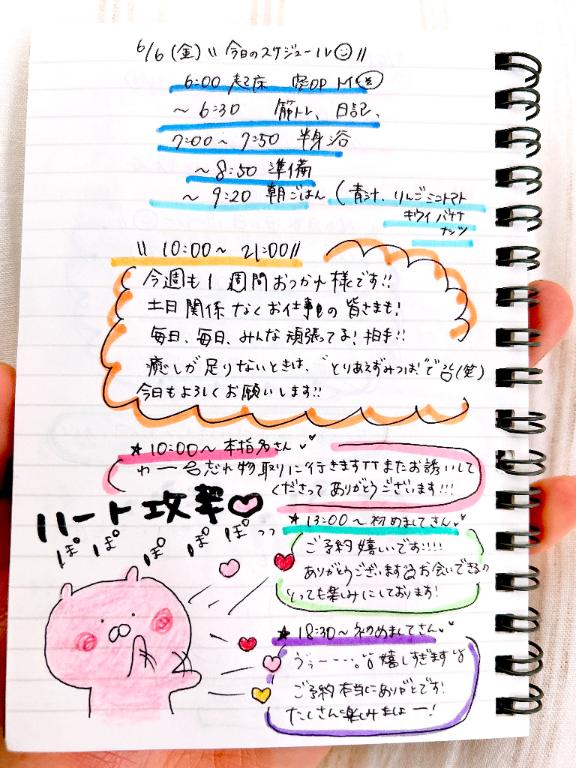 6/6(金)〝今日のスケジュール〟
6:00 起床 空OP トイ
〜6:30 筋トレ、日記、
7:00〜7:50 半身浴
〜8:50 準備
〜9:20 朝ごはん(青汁、りんご ミニトマト
キウイ バナナ
ナッツ
〝10:00〜21:00〟
今週も1週間おつかれ様です!!
土日関係なくお仕事の皆さまも!
毎日、毎日、みんな頑張ってる!拍手!!
癒しが足りないときは、〝とりあえずみつは!〟で(笑)
今日もよろしくお願いします!!
★10:00〜本指名さん
わー忘れ物取りに行きますTTまたお誘いして
くださってありがとうございます!!!
ハート攻撃♡
ぽ ぽ ぽ ぽ ぽっっ
★13:00〜初めましてさん
ご予約嬉しいです!!!!
ありがとうございます お会いできるの
とっても楽しみにしております!
★18:30〜初めましてさん
うぅーーー。嬉しすぎます
ご予約本当にありがとです!
たくさん楽しみましょー!